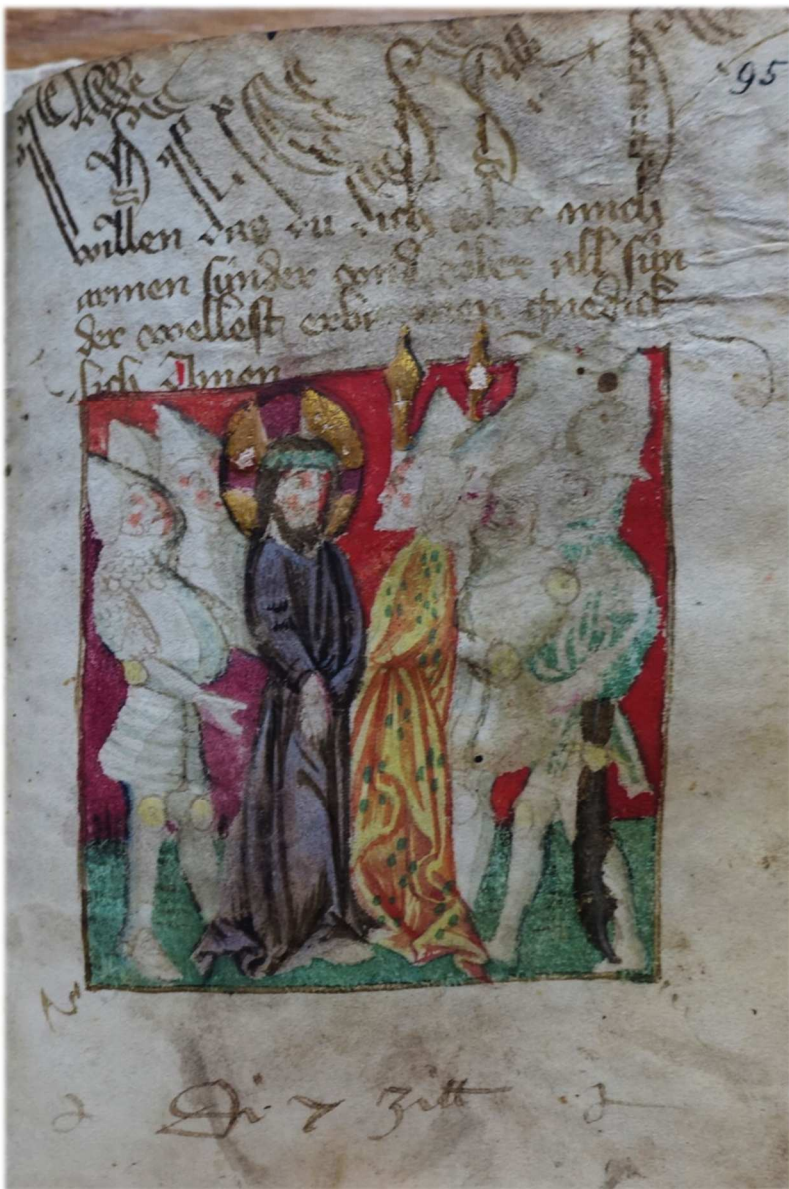 95
willen das du dich über mich
armen sünder vnd über all sün
der wellest erbarmen gnedick
lich Amen
Di 7 zitt